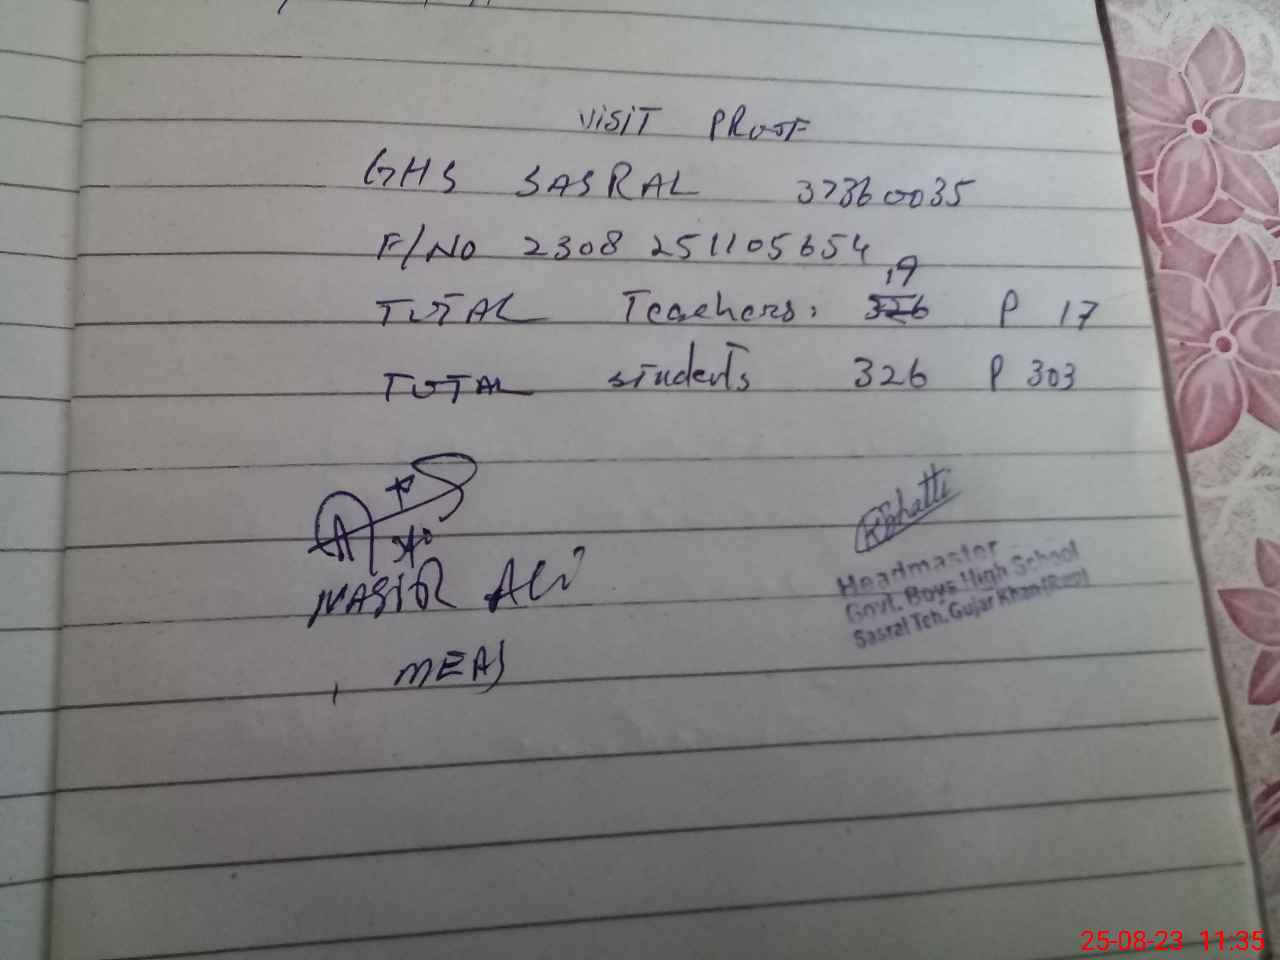 VISIT PROOF
GHS SASRAL 37360035
F/NO 2308 251105654
19
TOTAL Teachers: 326 P 17
TOTAL students 326 P 303
RBhatti
NASIR ALI
MEAS
Headmaster
Govt. Boys High School
Sasral Teh. Gujar Khan (Rwp)
25-08-23 11:35